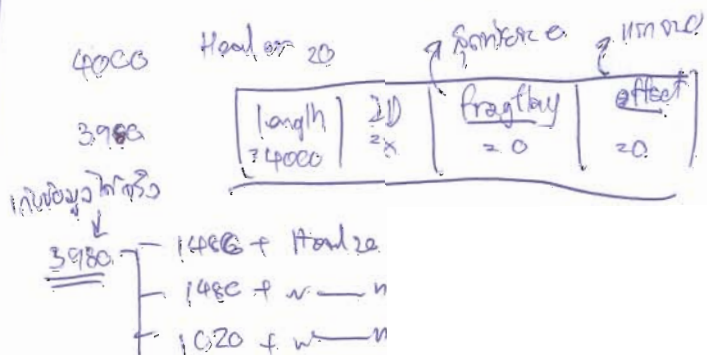 4000 Header 20 สุดท้าย = 0 แรก จะ 0
3980
length = 4000 ID = x fragflag = 0 offset = 0
เก็บข้อมูลได้จริง
3980 1480 + Head 20
1480 + " — "
1020 + " — "